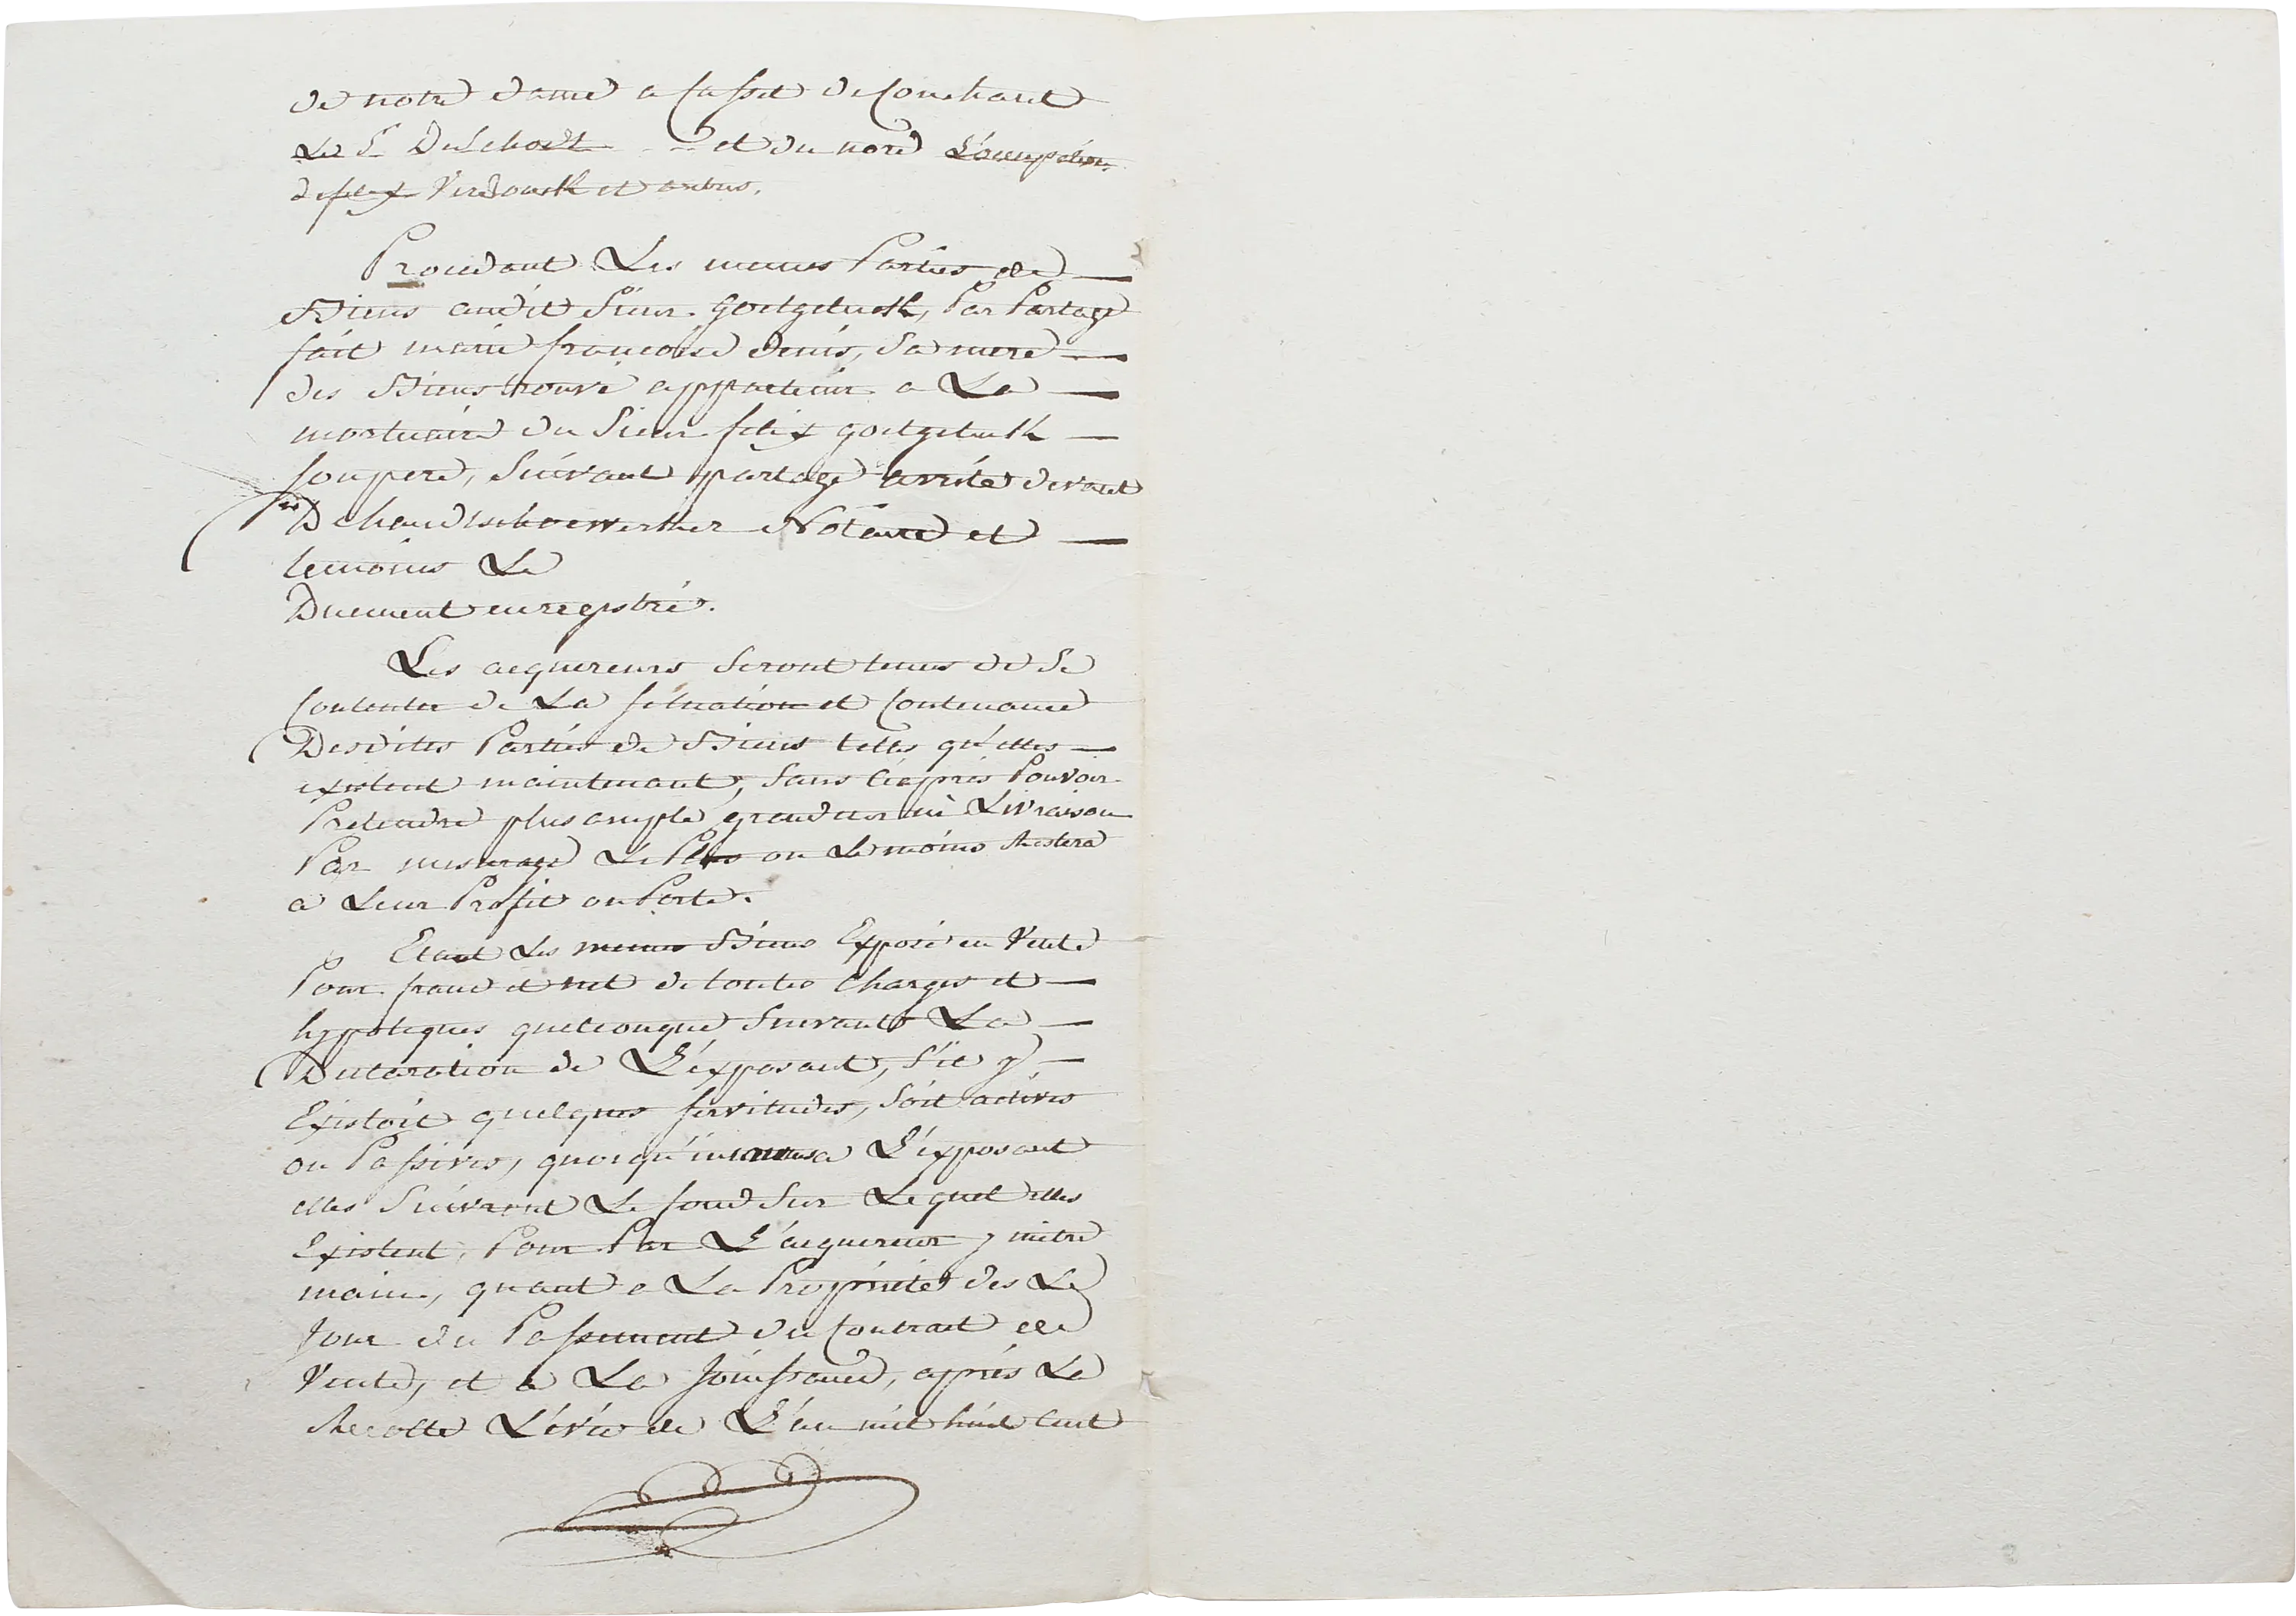 de notre dame a Cassel de Couchant
Le Sr. Deschodt -- et du nord L'occupation
de felix Verdonck et autres.
Procedant Les memes Parties de
Biens audit Sieur goetgeluck, Par Partage
fait marie francoise denis, Sa mere
des Biens trouvé appartenir a La
mortuaire du Sieur felix goetgeluck
Son pere, Suivant partage arrêté devant
Dehandtschoewercker Notaire et
temoins Le
Duement enregistré.
Les acquereurs Seront tenus de Se
Contenter de La Situation et Contenance
Desdites Parties de Biens telles qu'elles
existent maintenant, Sans ciaprès Pouvoir
Pretendre plus ample grandeur ni Livraison
Par mesurage Le Plus ou Le moins Restera
a Leur Profit ou Perte.
Etant Les memes Biens Exposé en Vente
Pour franc et net de toutes Charges et
hypoteques quelconque Suivant La
Declaration de L'exposant, S'il y
Existoit quelques Servitudes, Soit actives
ou Passives, quoiqu'inconnus a L'exposant
elles Suivront Le fond Sur Lequel elles
Existent, Pour Par L'acquereur y mettre
main, quant a La Propriété des Le
Jour du Passement du Contrat de
Vente, et a La Jouissance, après La
Recolte Levée de L'an mil huit Cent